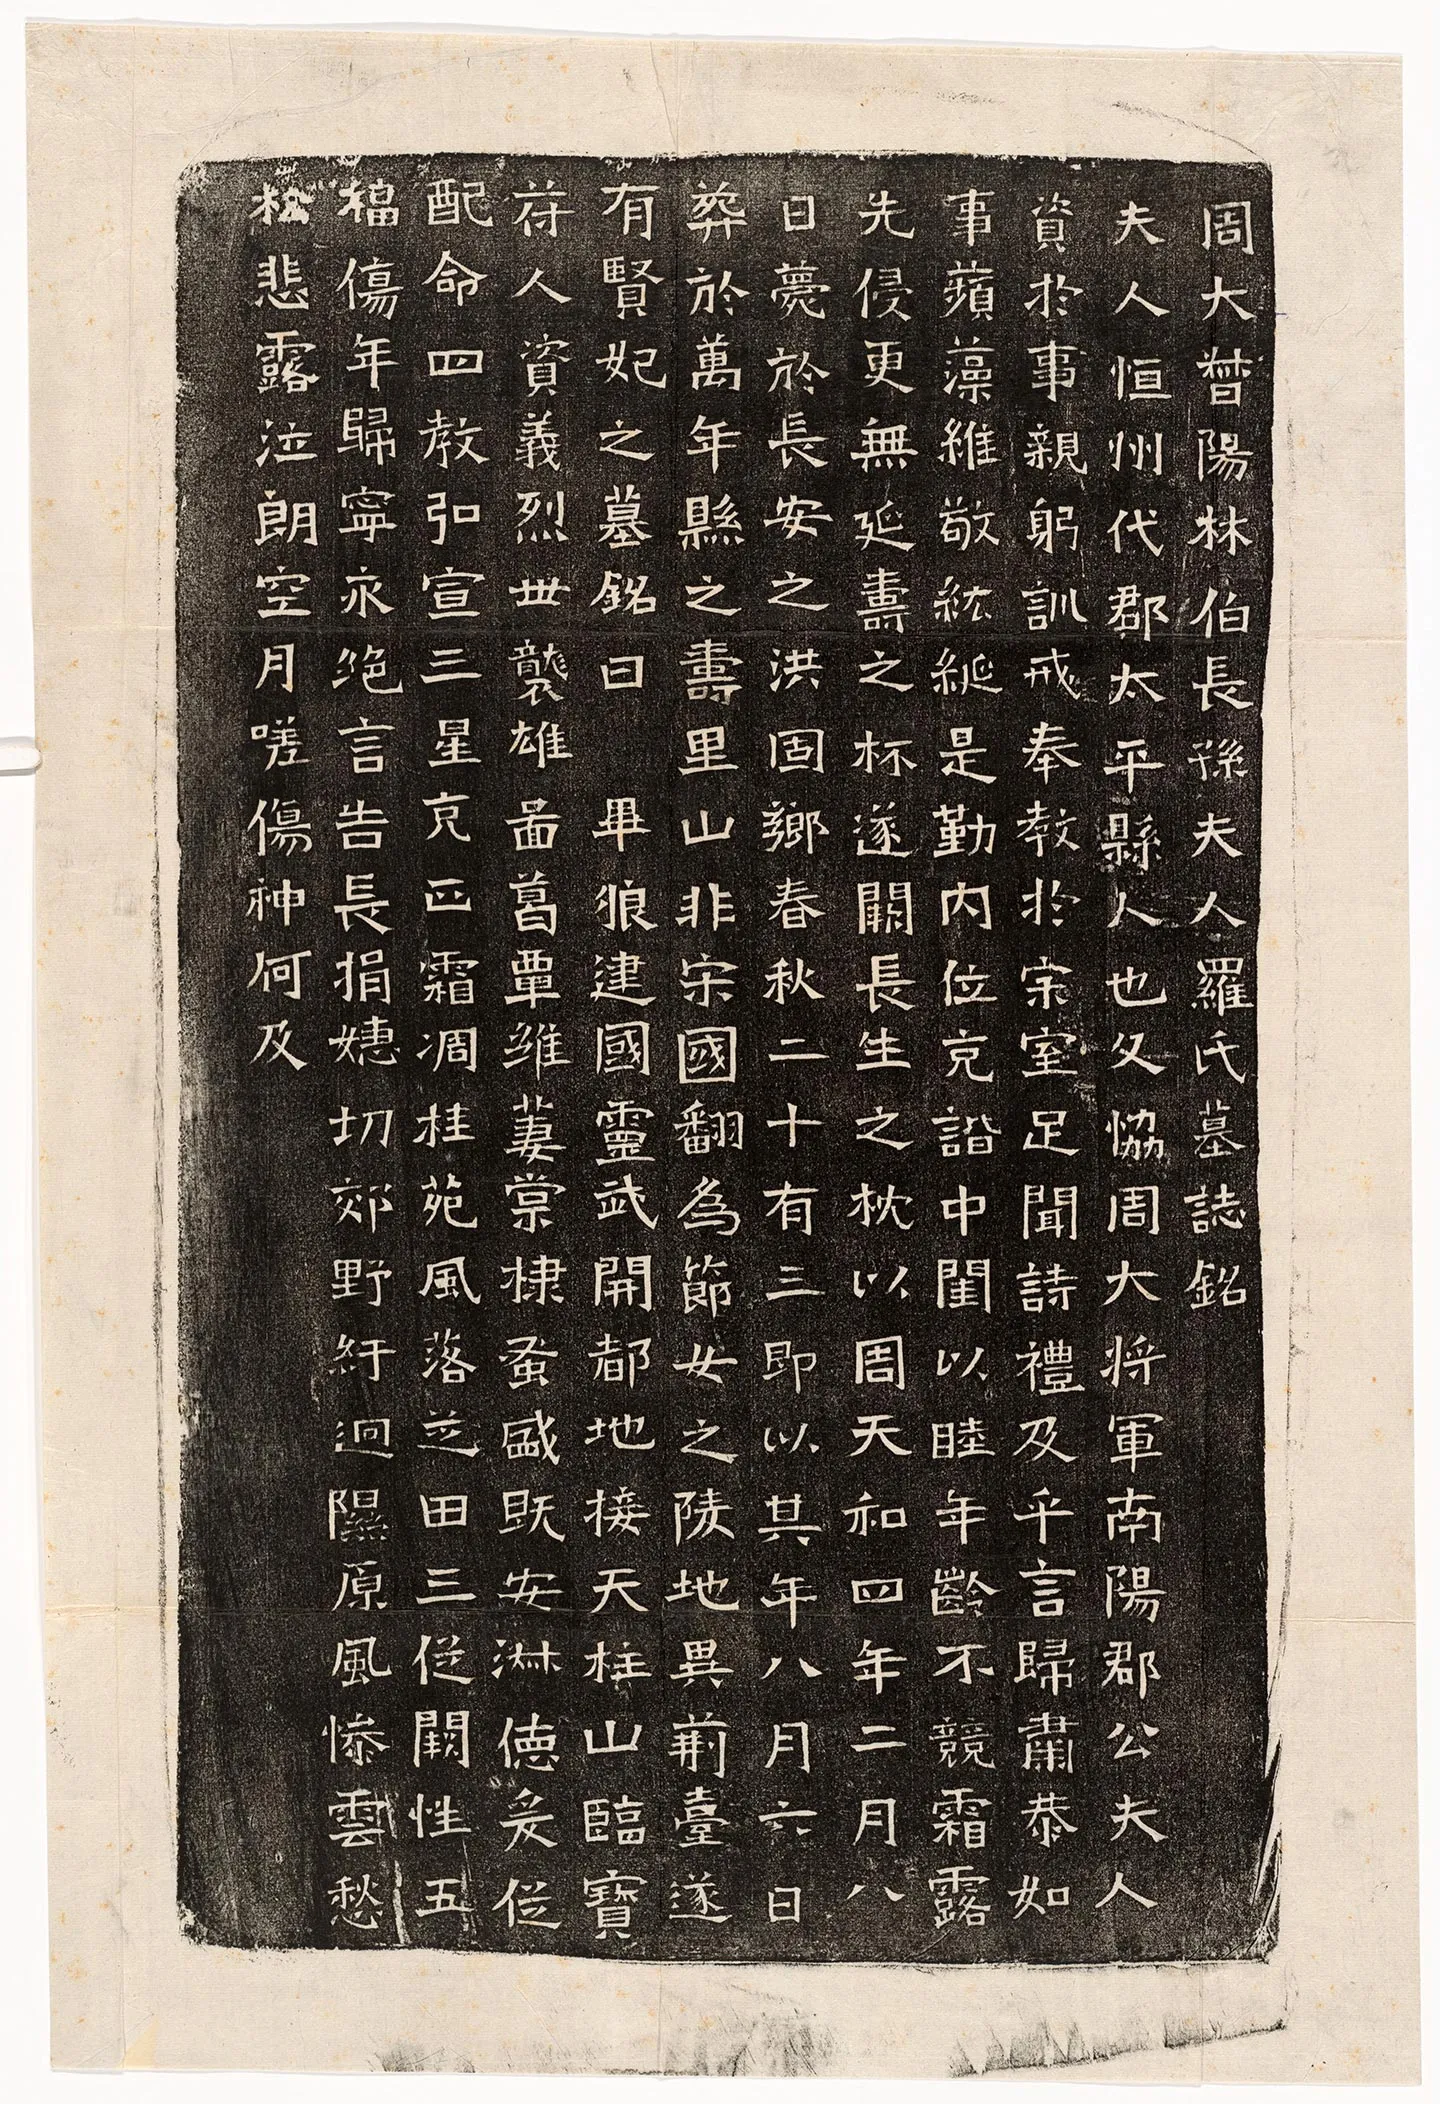 周大督陽林伯長孫夫人羅氏墓誌銘
夫人恒州代郡太平縣人也父恊周大將軍南陽郡公夫人
資於事親躬訓戒奉教於宗室足聞詩禮及乎言歸肅恭如
事蘋藻維敬紞綖是勤内位克諧中閨以睦年齡不競霜露
先侵更無延壽之杯遂闕長生之枕以周天和四年二月八
日薨於長安之洪固鄉春秋二十有三即以其年八月六日
葬於萬年縣之壽里山非宋國翻為節女之陵地異荊臺遂
有賢妃之墓銘曰　畢狼建國靈武開都地接天柱山臨寶
苻人資義烈世襲雄啚葛覃維萋棠棣蚤盛既安淋德爰從
配命四教弘宣三星克正霜凋桂苑風落芝田三從闕性五
福傷年歸寧永絕言告長捐悽切郊野紆迴隰原風慘雲愁
松悲露泣朗空月嗟傷神何及